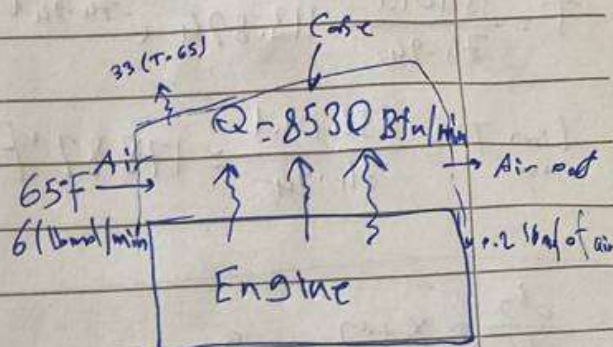 Case
33(T-65)
Q = 8530 Btu/min
Air
65°F
Air out
6 lbmol/min
0.2 lbmol of air
Engine